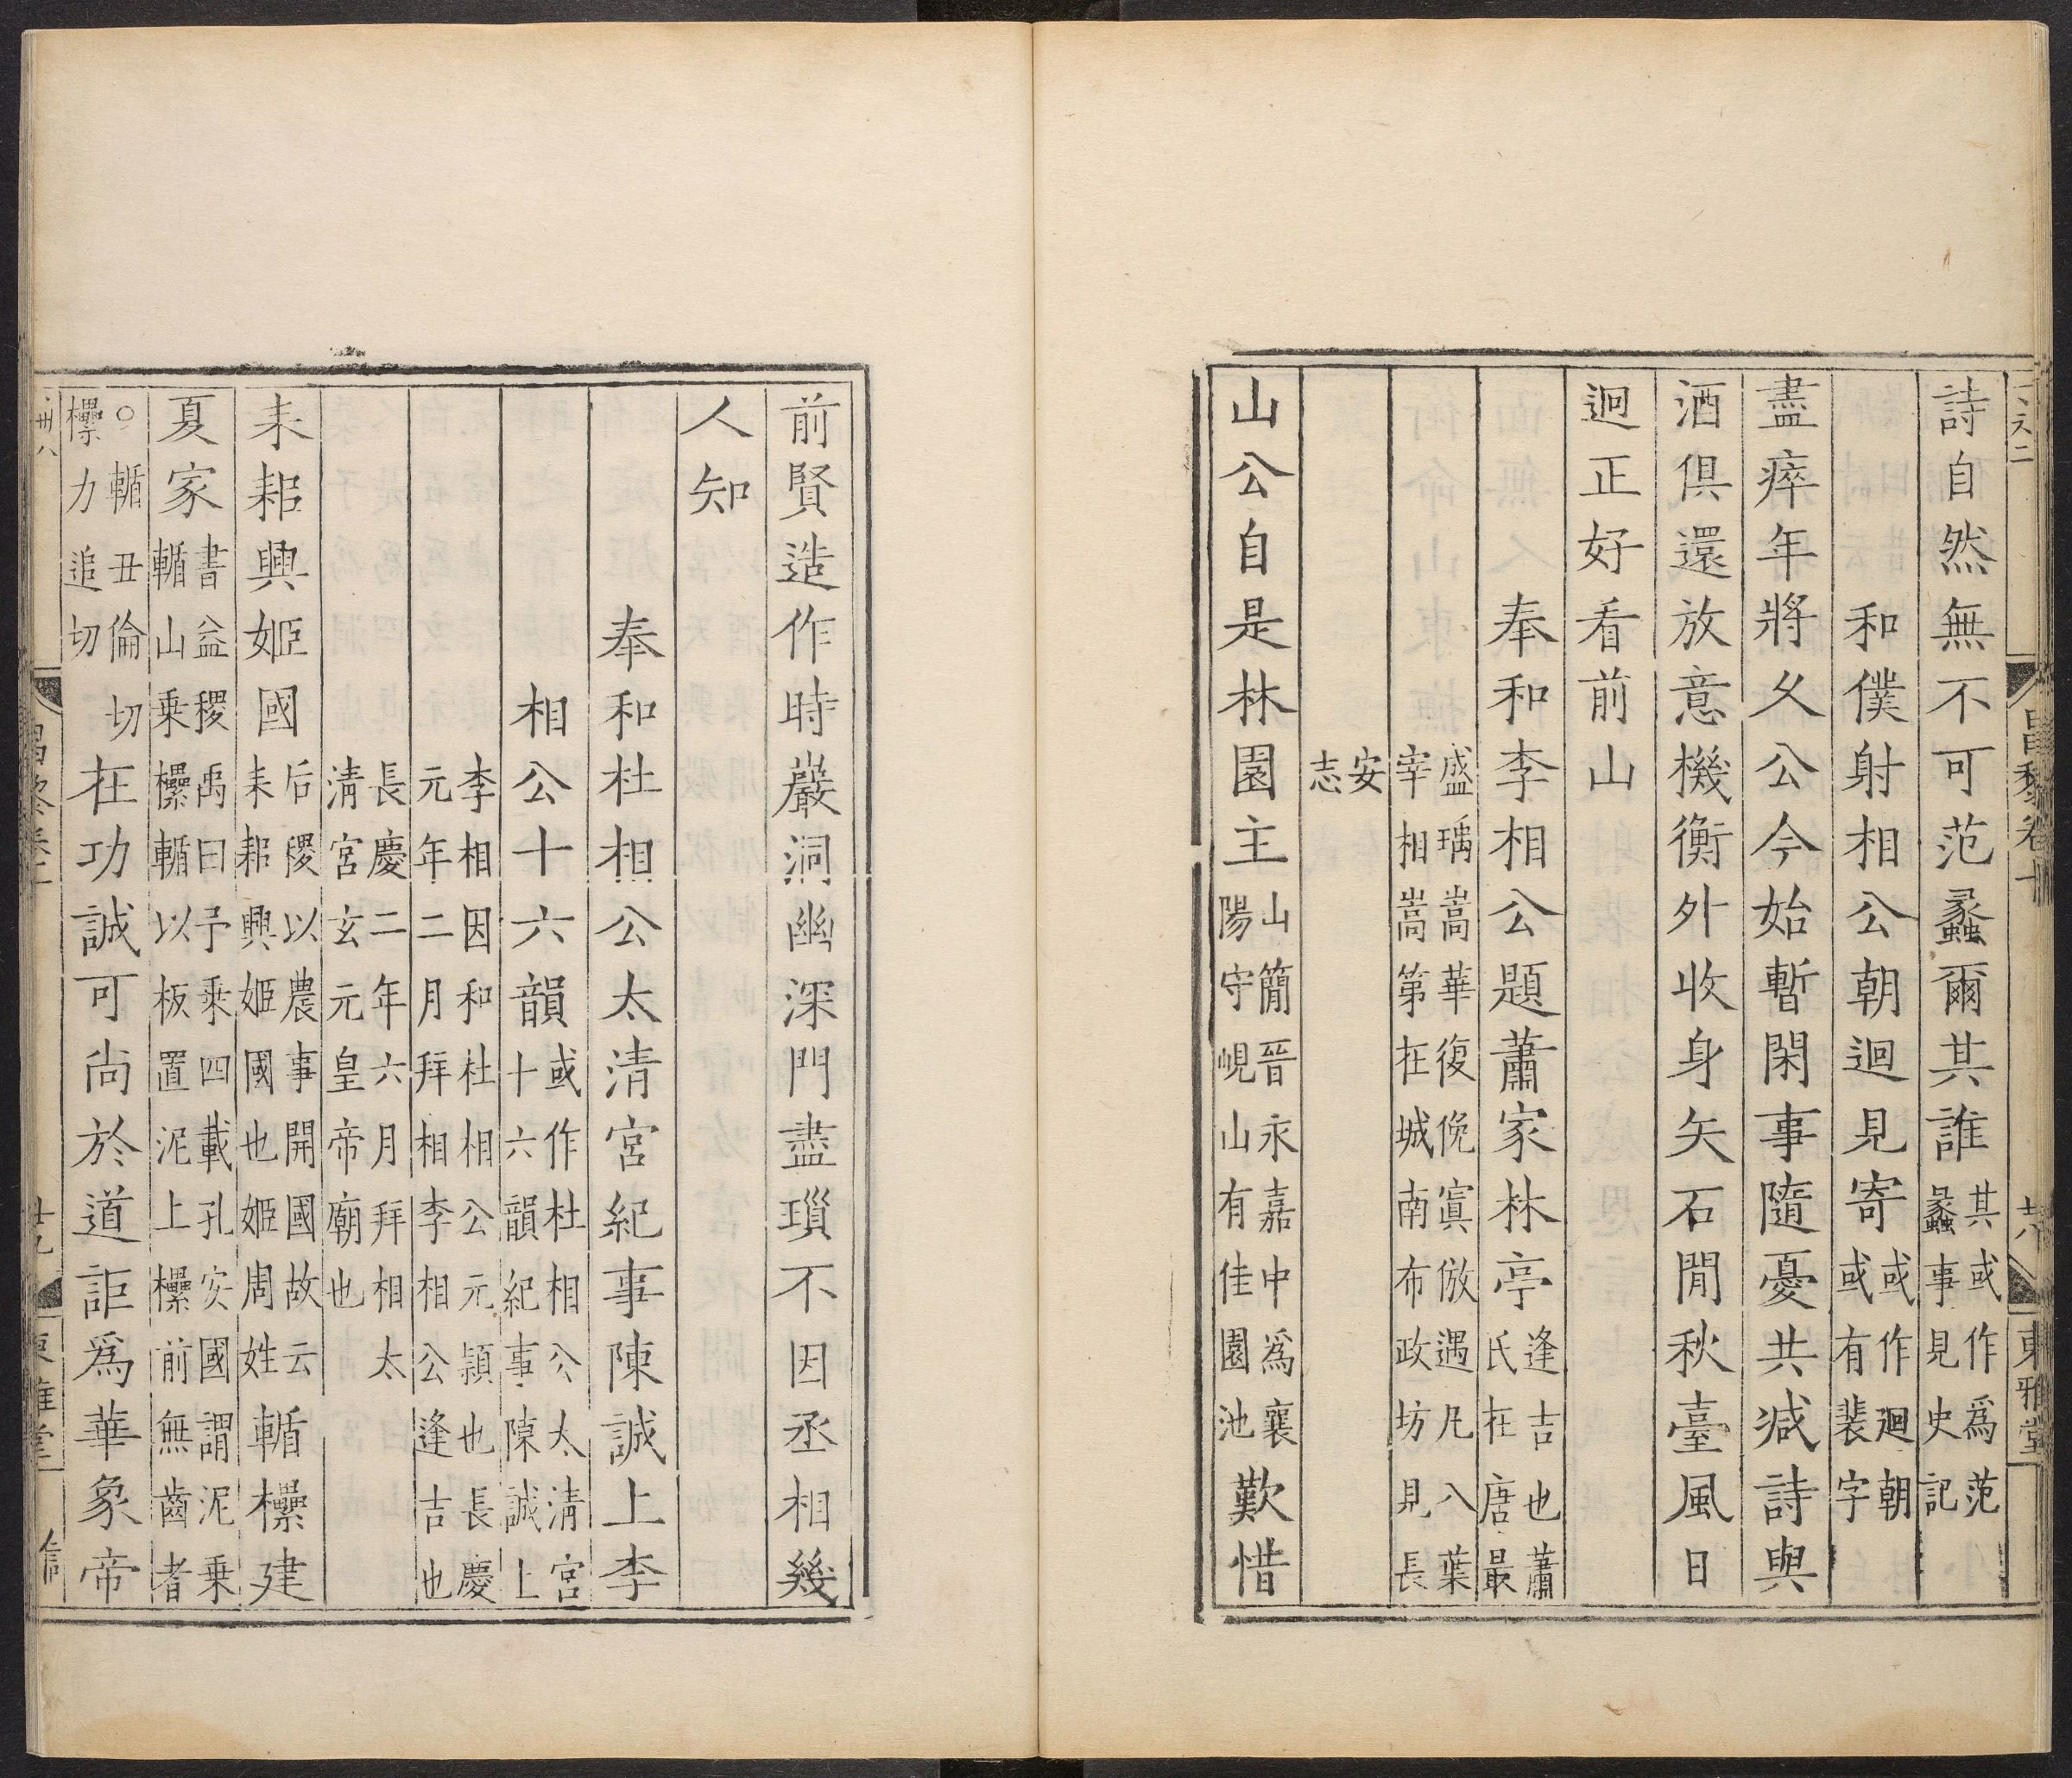 昌黎卷十 十八 東雅堂
詩自然無不可范蠡爾其誰其或作爲范蠡事見史記
和僕射相公朝迴見寄或作廻朝或有裴字
盡瘁年將久公今始暫閑事隨憂共減詩與
酒俱還放意機衡外收身矢石間秋臺風日
迥正好看前山
奉和李相公題蕭家林亭逢吉也蕭氏在唐最
盛瑀嵩華復俛寘倣遇凡八葉宰相嵩第在城南布政坊見長
安志
山公自是林園主山簡晉永嘉中爲襄陽守峴山有佳園池歎惜
前賢造作時巖洞幽深門盡瑣不因丞相幾
人知
奉和杜相公太清宮紀事陳誠上李
相公十六韻或作杜相公太淸宮十六韻紀事陳誠上
李相因和杜相公元穎也長慶元年二月拜相李相公逢吉也
長慶二年六月拜相太淸宮玄元皇帝廟也
耒耜興姬國后稷以農事開國故云耒耜興姬國也姬周姓輴欙建
夏家書益稷禹曰予乘四載孔安國謂泥乗輴山乗欙輴以板置泥上欙前無齒者
○輴丑倫切欙力追切在功誠可尚於道詎爲華象帝
卌八 昌黎卷十 十九 東雅堂